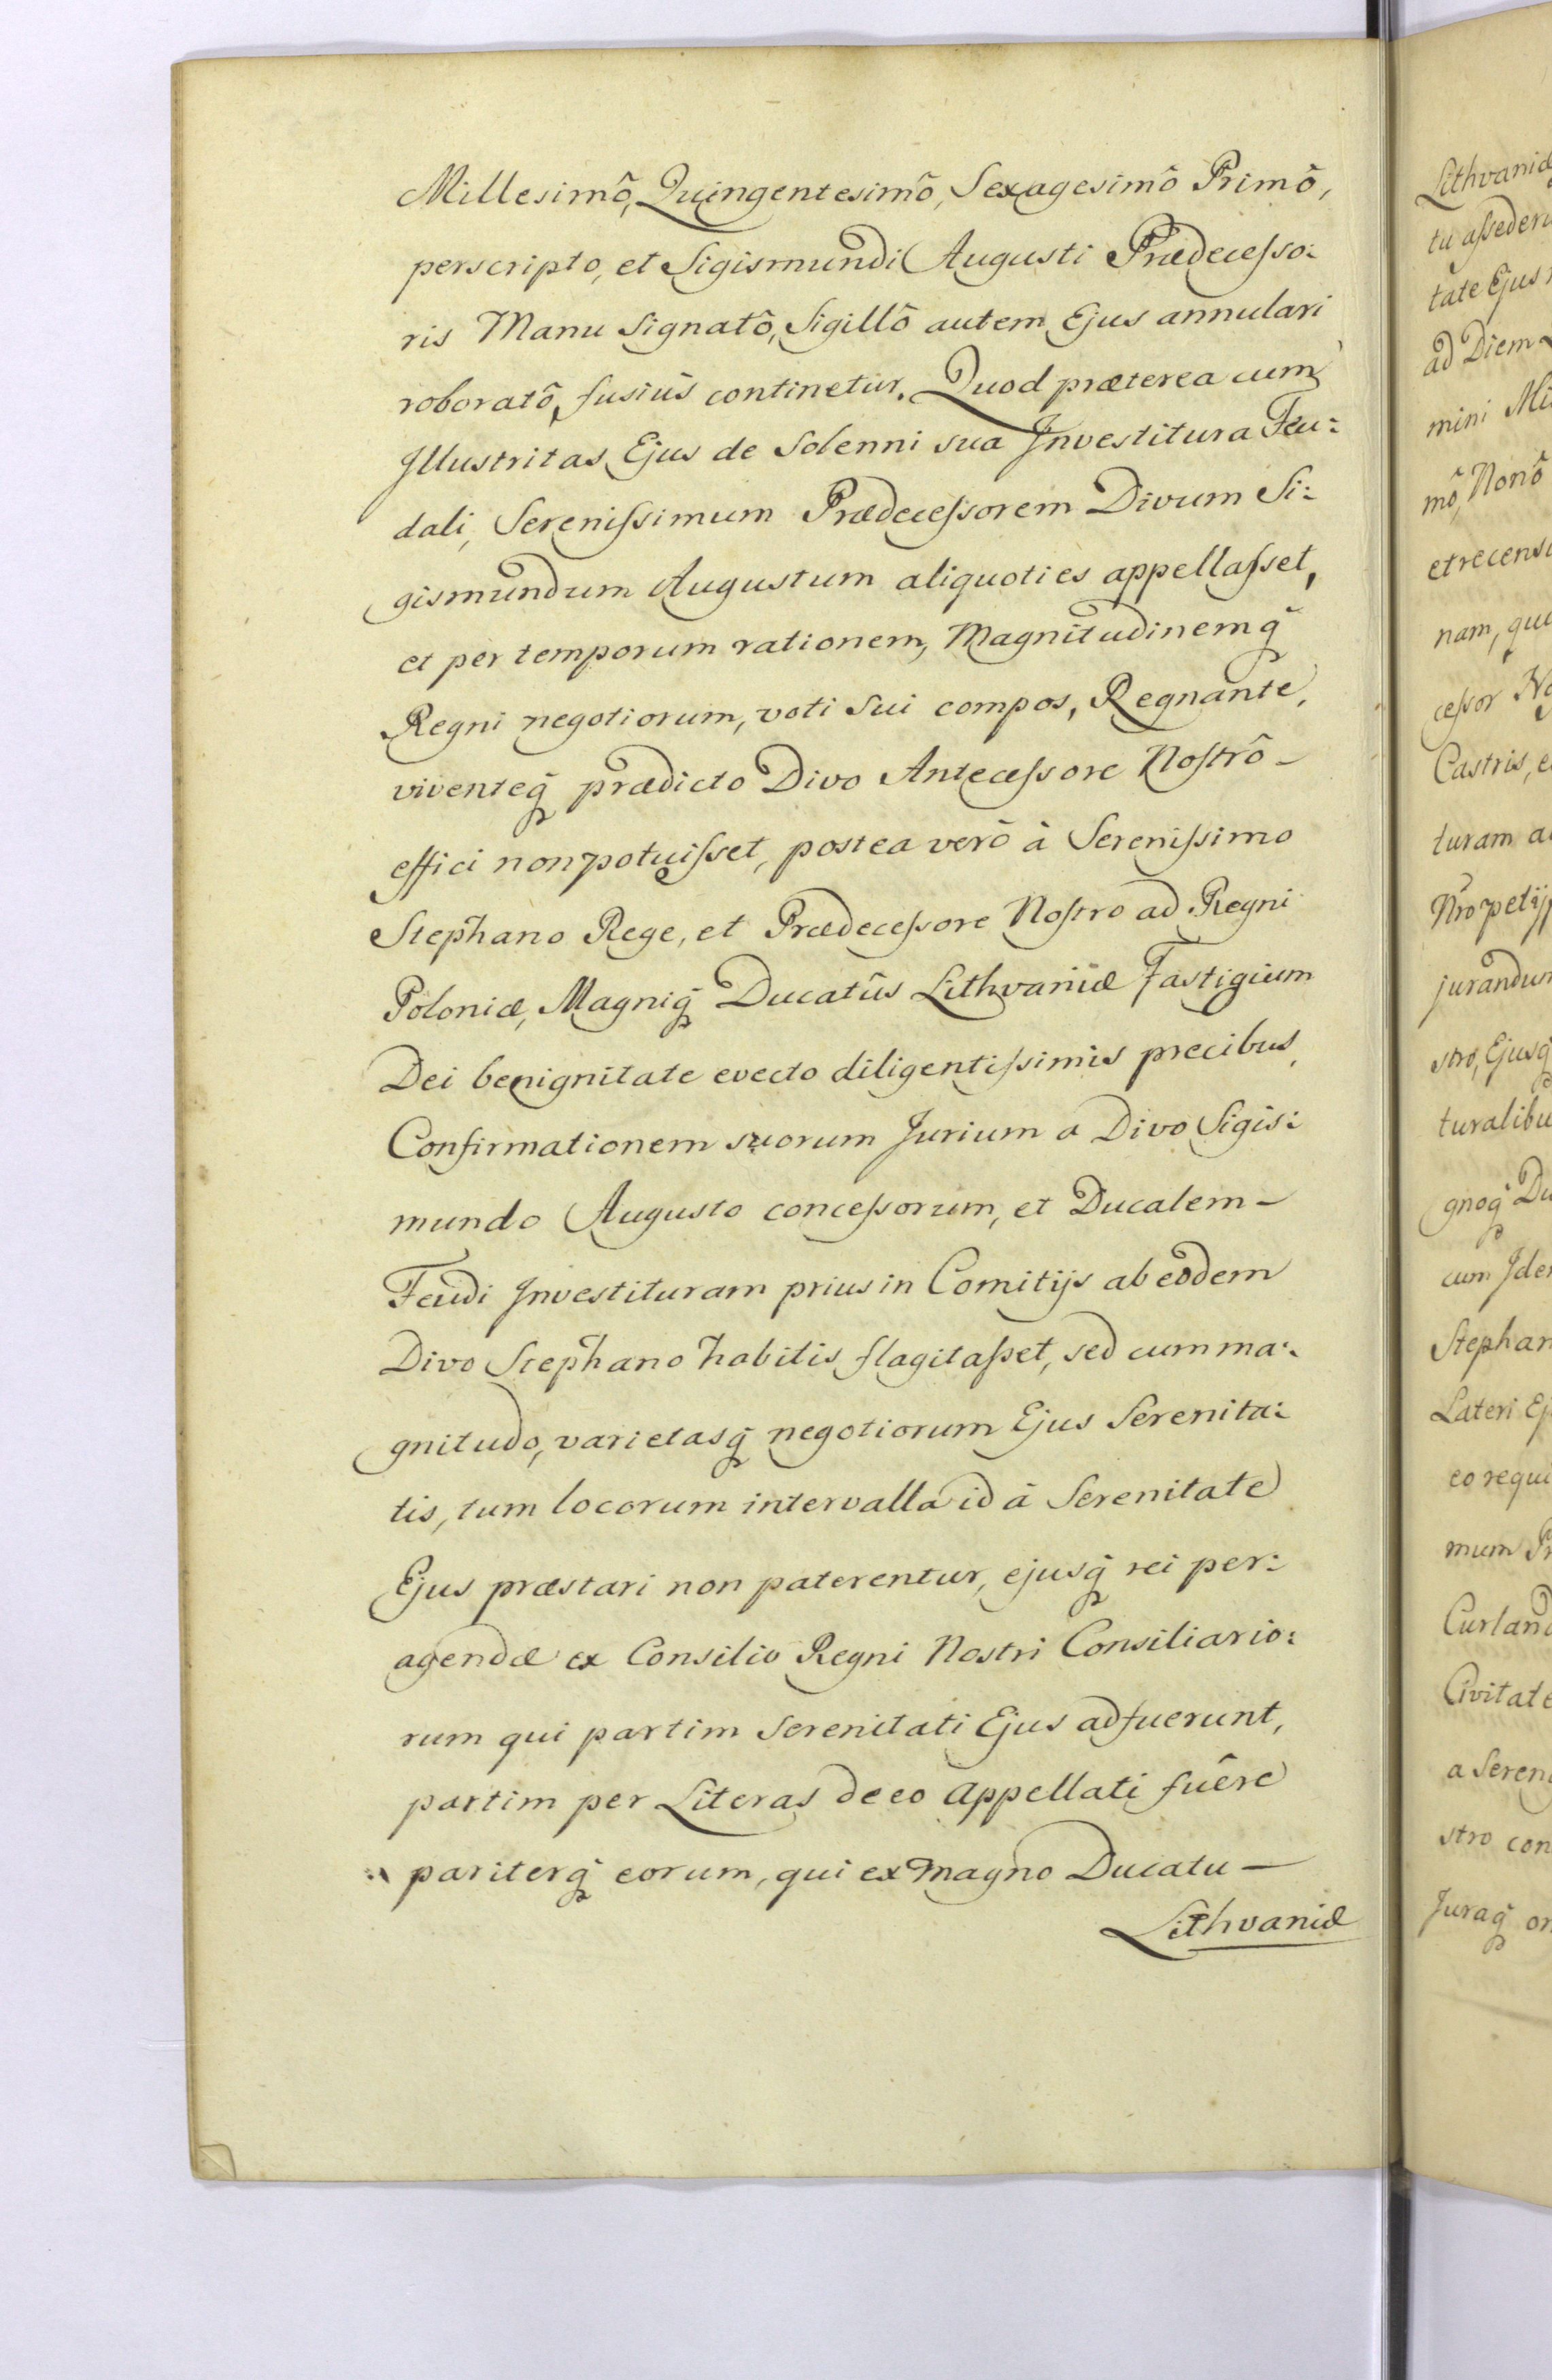 Millesimô, Quingentesimô, Sexagesimô Primô,
perscripto, et Sigismundi Augusti Prædeceſso:
ris Manu Signatô, Sigillô autem Ejus annulari
roboratô, fusiùs continetur. Quod præterea cum
Illustritas Ejus de Solenni sua Investitura Feu:
dali, Sereniſsimum Prædeceſsorem Divum Si:
gismundum Augustum aliquoties appellaſset,
et per temporum rationem, Magnitudinemq̃
Regni negotiorum, voti Sui compos, Regnante,
viventeq̃ prædicto Divo Anteceſsore Noſtrô –
effici non potuiſset, postea verò à Sereniſsimo
Stephano Rege, et Prædeceſsore Noſtro ad Regni
Poloniæ, Magniq̃ Ducatûs Lithvaniæ Fastigium
Dei benignitate evecto diligentiſsimis precibus,
Confirmationem suorum Jurium a Divo Sigis:
mundo Augusto conceſsorum, et Ducalem –
Feudi Investituram prius in Comitijs ab eodem
Divo Stephano habitis flagitaſset, sed cum ma:
gnitudo, varietasq̃ negotiorum Ejus Serenita:
tis, tum locorum intervalla id à Serenitate
Ejus præstari non paterentur, ejusq̃ rei per:
agendæ ex Consilio Regni Nostri Consiliario:
rum qui partim Serenitati Ejus adfuerunt,
partim per Literas de eo Appellati fuêre
pariterq̃ eorum, qui ex Magno Ducatu –
Lithvaniæ
Lithvaniæ
tu aſseder
tate Ejus
ad Diem
mini
mô, Nonô
et recens
nam,
ceſsor
Castris,
turam
Nro
jurandum
stro, Ejusq̃
turalibu
gnoq̃ Du
cum
Stephan
Lateri
eo requi
mum
Curland
Civitate
a Seren
stro con
Juraq̃